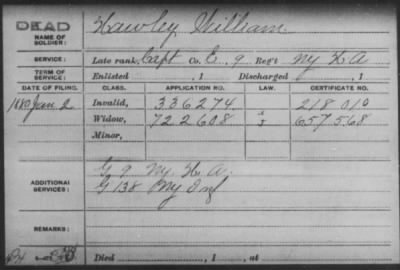 DEAD
NAME OF SOLDIER: Hawley, William
SERVICE: Late rank, Capt Co. E, 9 Reg't NY H A
TERM OF SERVICE: Enlisted , 1 Discharged , 1
DATE OF FILING. CLASS. APPLICATION NO. LAW. CERTIFICATE NO.
1880 Jan. 2 Invalid, 336274 218010
Widow, 722608 657568
Minor,
ADDITIONAL SERVICES: G 9 NY. H A.
G 138 NY Inf
REMARKS:
Died , 1 , at